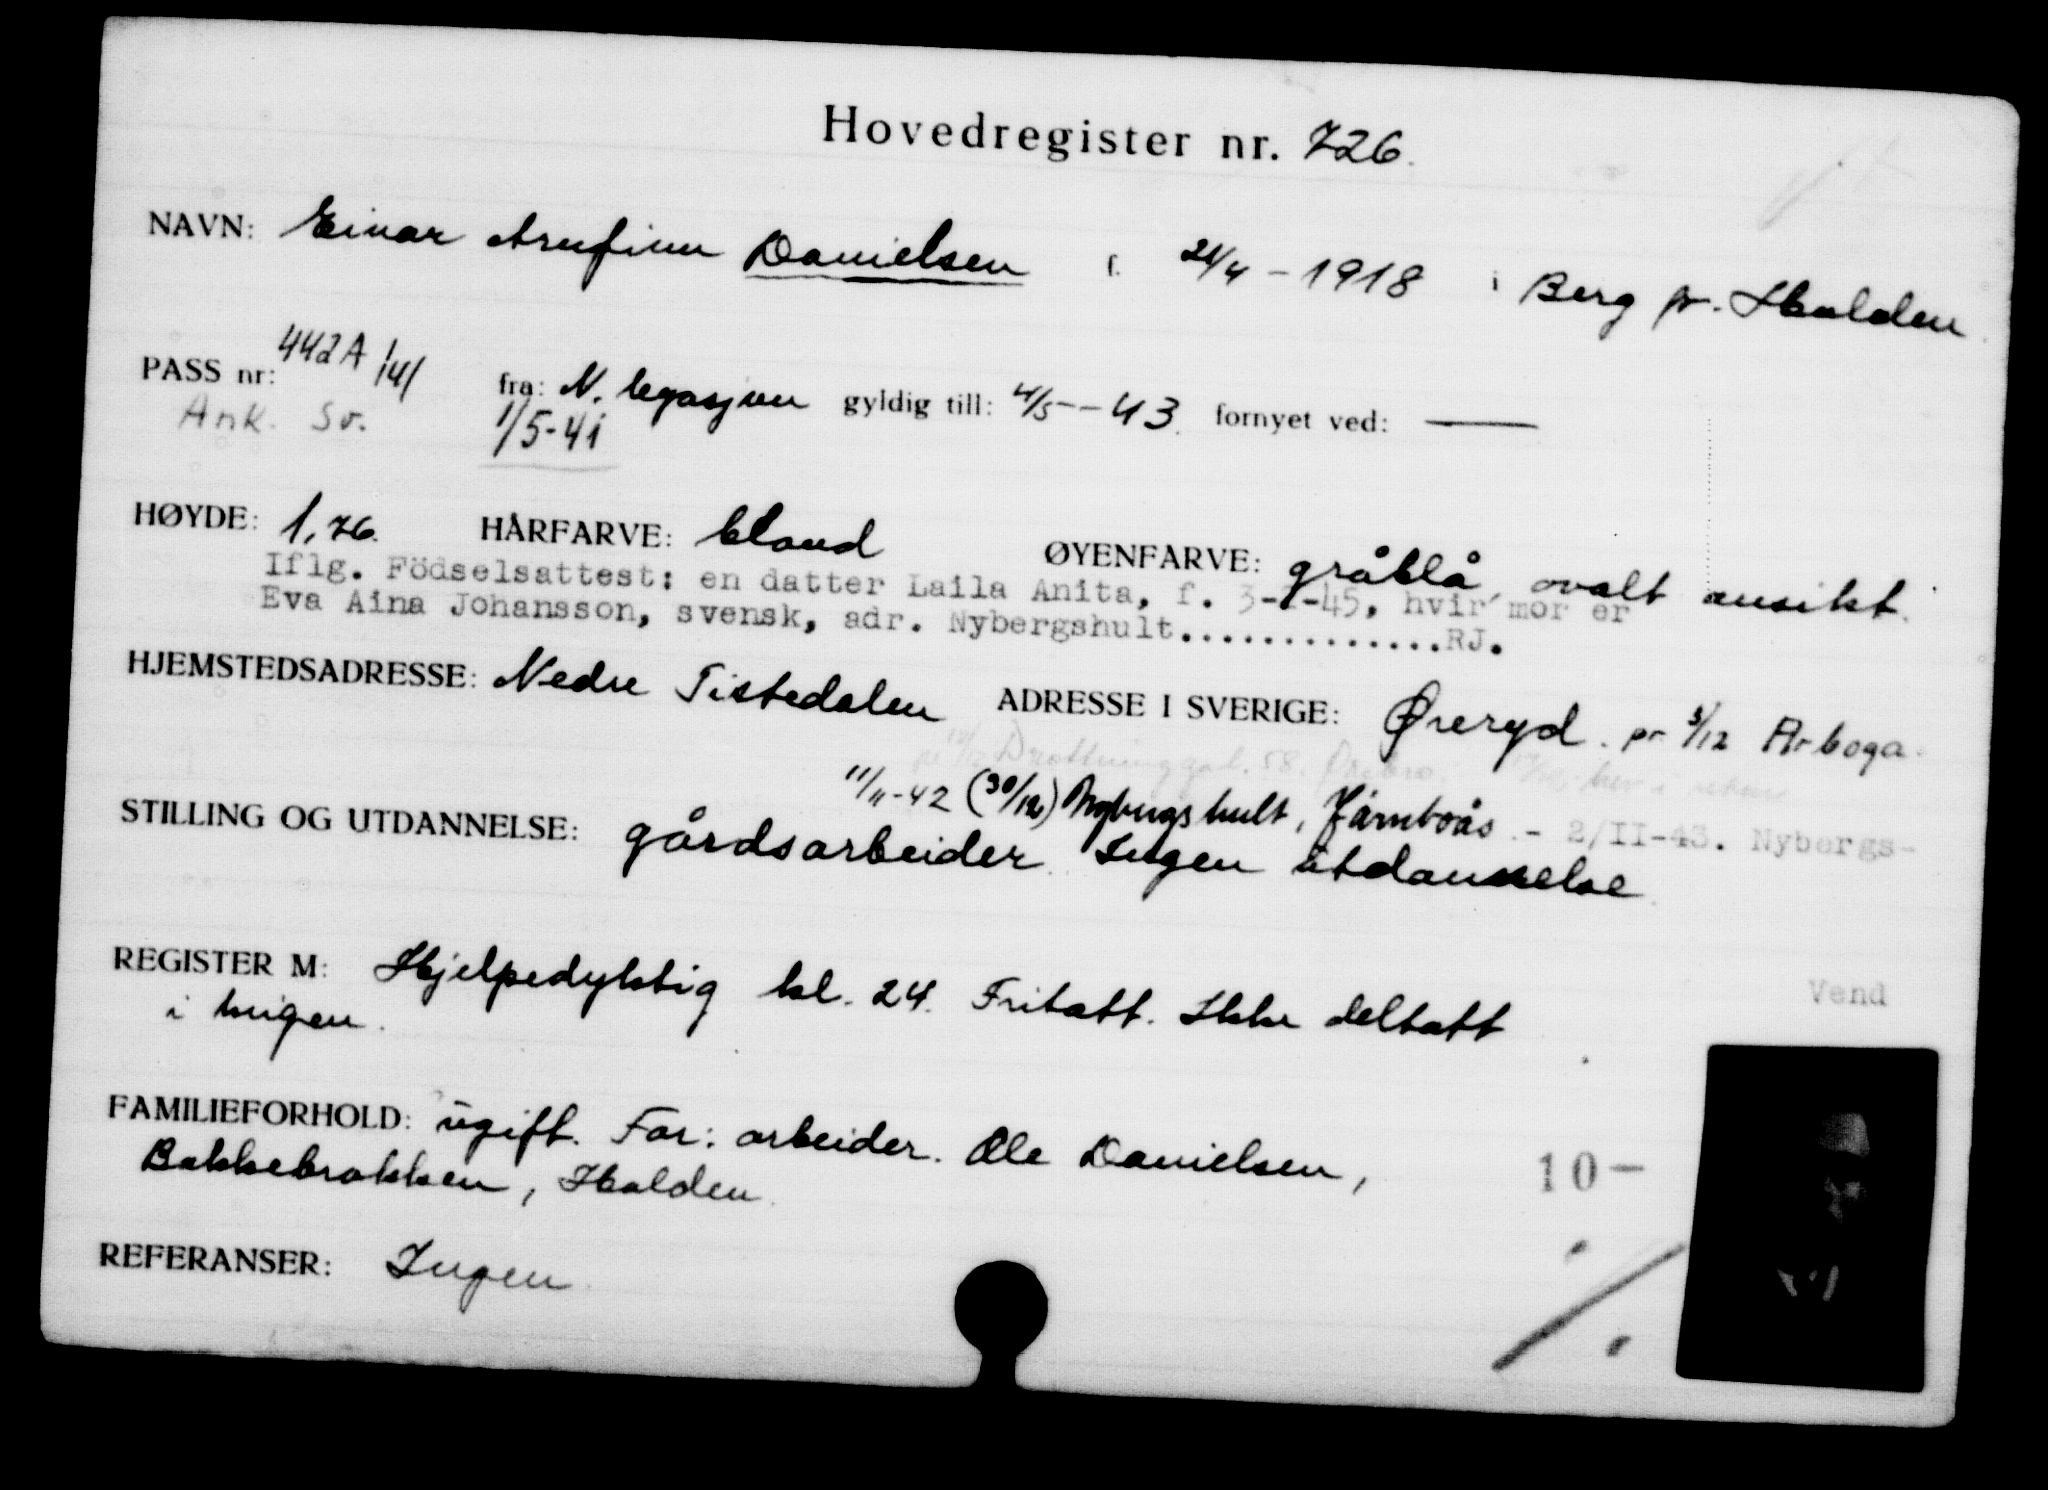 Hovedregister nr. 726.
NAVN: Einar Arnfinn Danielsen f. 21/4 - 1918 i Berg pr. Halden
PASS nr: 442A/41 fra: N. legasjon gyldig till: 4/5 -- 43. fornyet ved: —
Ank. Sv. 1/5-41
HØYDE: 1,76. HÅRFARVE: blond ØYENFARVE: gråblå, ovalt ansikt.
Iflg. Födselsattest: en datter Laila Anita, f. 3-1-45, hvir mor er
Eva Aina Johansson, svensk, adr. Nybergshult.............RJ.
HJEMSTEDSADRESSE: Nedre Tistedalen ADRESSE I SVERIGE: Øreryd. pr 3/12 Arboga.
Drottninggat. 58. Örebro.
11/11-42 (30/12) Nybergshult, Järnboås. - 2/II-43. Nybergs-
STILLING OG UTDANNELSE: gårdsarbeider. Ingen utdannelse.
REGISTER M: Hjelpedyktig kl. 24. Fritatt. Ikke deltatt
i krigen.
Vend
FAMILIEFORHOLD: ugift. Far: arbeider. Ole Danielsen,
Bakkebrakken, Halden.
10-
REFERANSER: Ingen.